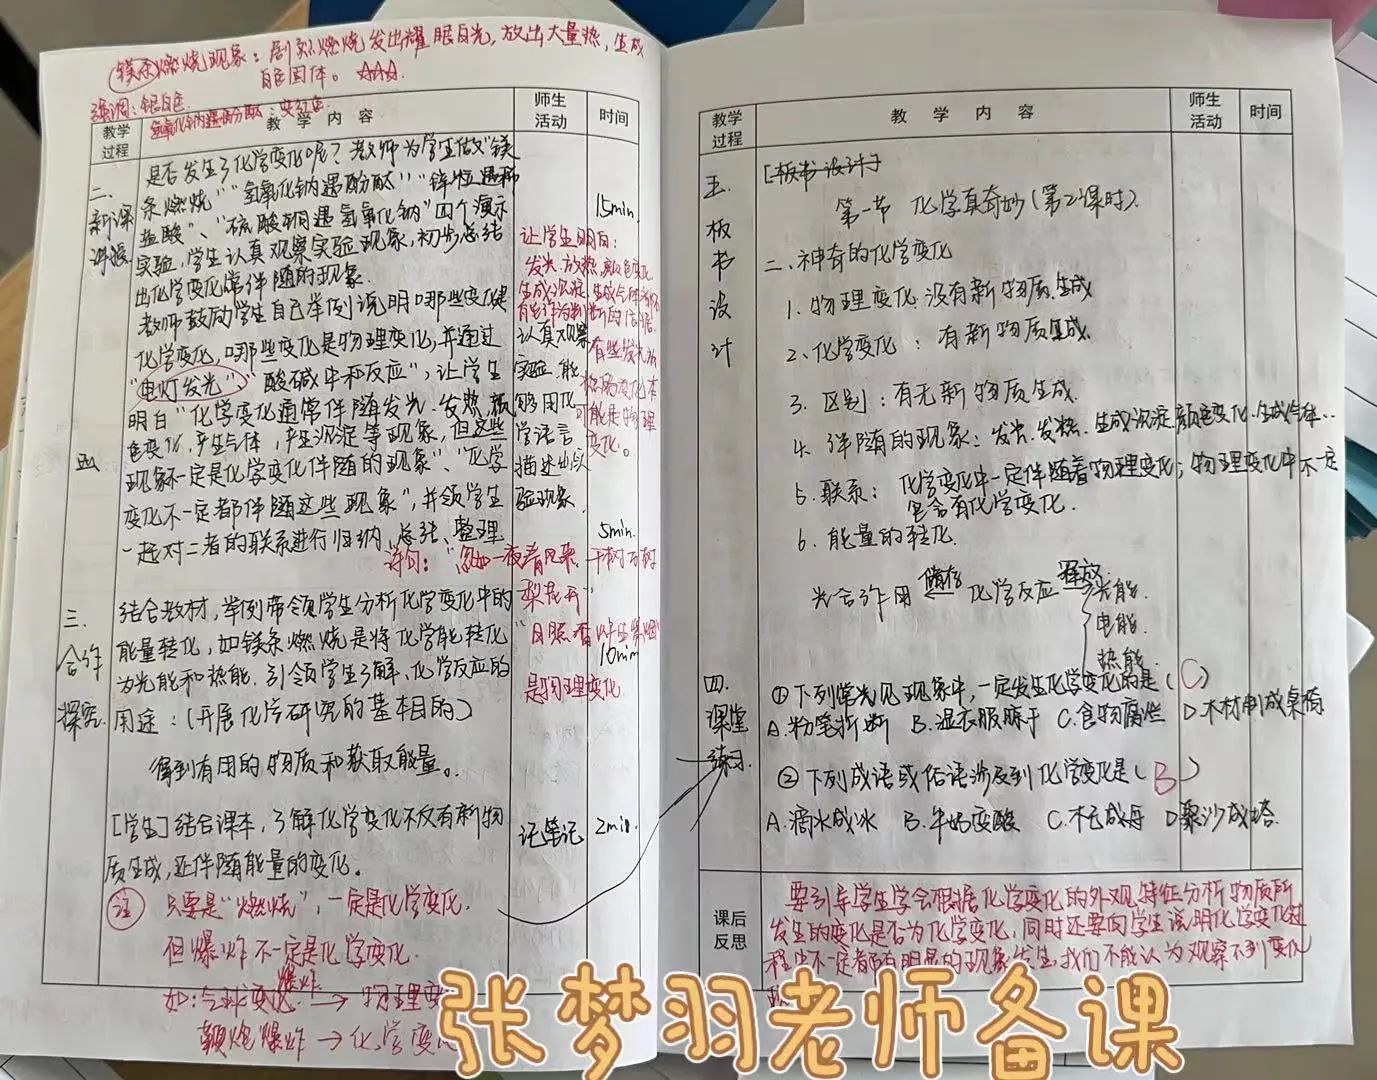 镁条燃烧现象：剧烈燃烧发出耀眼白光，放出大量热，生成
白色固体。
强调：银白色
氢氧化钠遇酚酞：变红色
教学过程
教 学 内 容
师生活动
时间
二、新课讲授
是否发生了化学变化呢？老师为学生做“镁
条燃烧”“氢氧化钠遇酚酞”“锌粒遇稀
盐酸”、“硫酸铜遇氢氧化钠”四个演示
实验，学生认真观察实验现象，初步总结
出化学变化常伴随的现象.
老师鼓励学生自己举例说明哪些变化是
化学变化，哪些变化是物理变化，并通过
“电灯发光”，“酸碱中和反应”，让学生
明白“化学变化通常伴随发光、发热、颜
色变化，产生气体，产生沉淀等现象，但这些
现象不一定是化学变化伴随的现象”、“化学
变化不一定都伴随这些现象”，并领学生
一起对二者的联系进行归纳、总结、整理
15min.
让学生明白：
发光、放热、颜色变化
生成沉淀、生成气体
有些发光放
可能是物理
变化。
认真观察
实验，能
够用化
学语言
描述出实
验现象.
5min.
诗句：“忽如一夜春风来，千树万树
梨花开”
“日照香炉生紫烟”
是物理变化
三.合作探究
结合教材，举例带领学生分析化学变化中的
能量转化，如镁条燃烧是将化学能转化
为光能和热能. 引领学生了解、化学反应的
用途：（开展化学研究的基本目的）
得到有用的物质和获取能量。
10min
[学生]结合课本，了解化学变化不仅有新物
质生成，还伴随能量的变化。
记笔记
2min.
注 只要是“燃烧”，一定是化学变化.
但爆炸不一定是化学变化.
如：气球爆炸→物理变
鞭炮爆炸→化学变化
教学过程
教 学 内 容
师生活动
时间
五.板书设计
[板书设计]
第一节 化学真奇妙（第2课时）.
二、神奇的化学变化
1. 物理变化：没有新物质生成
2. 化学变化：有新物质生成.
3. 区别：有无新物质生成.
4. 伴随的现象：发光、发热、生成沉淀、颜色变化、生成气体...
5. 联系：化学变化中一定伴随着物理变化；物理变化中不一定
包含有化学变化.
6. 能量的转化.
光合作用 储存 化学反应 释放 光能.
电能.
热能.
四.课堂练习.
①下列常见现象中，一定发生化学变化的是（C）
A.粉笔折断 B.湿衣服晾干 C.食物腐烂 D.木材制成桌椅
②下列成语或俗语涉及到化学变化是（B）
A.滴水成冰 B.牛奶变酸 C.木已成舟 D.聚沙成塔.
课后反思
要引导学生学会根据化学变化的外观特征分析物质所
发生的变化是否为化学变化，同时还要向学生说明化学变化过
程中不一定都有明显的现象发生，我们不能认为观察不到变化
张梦羽老师备课